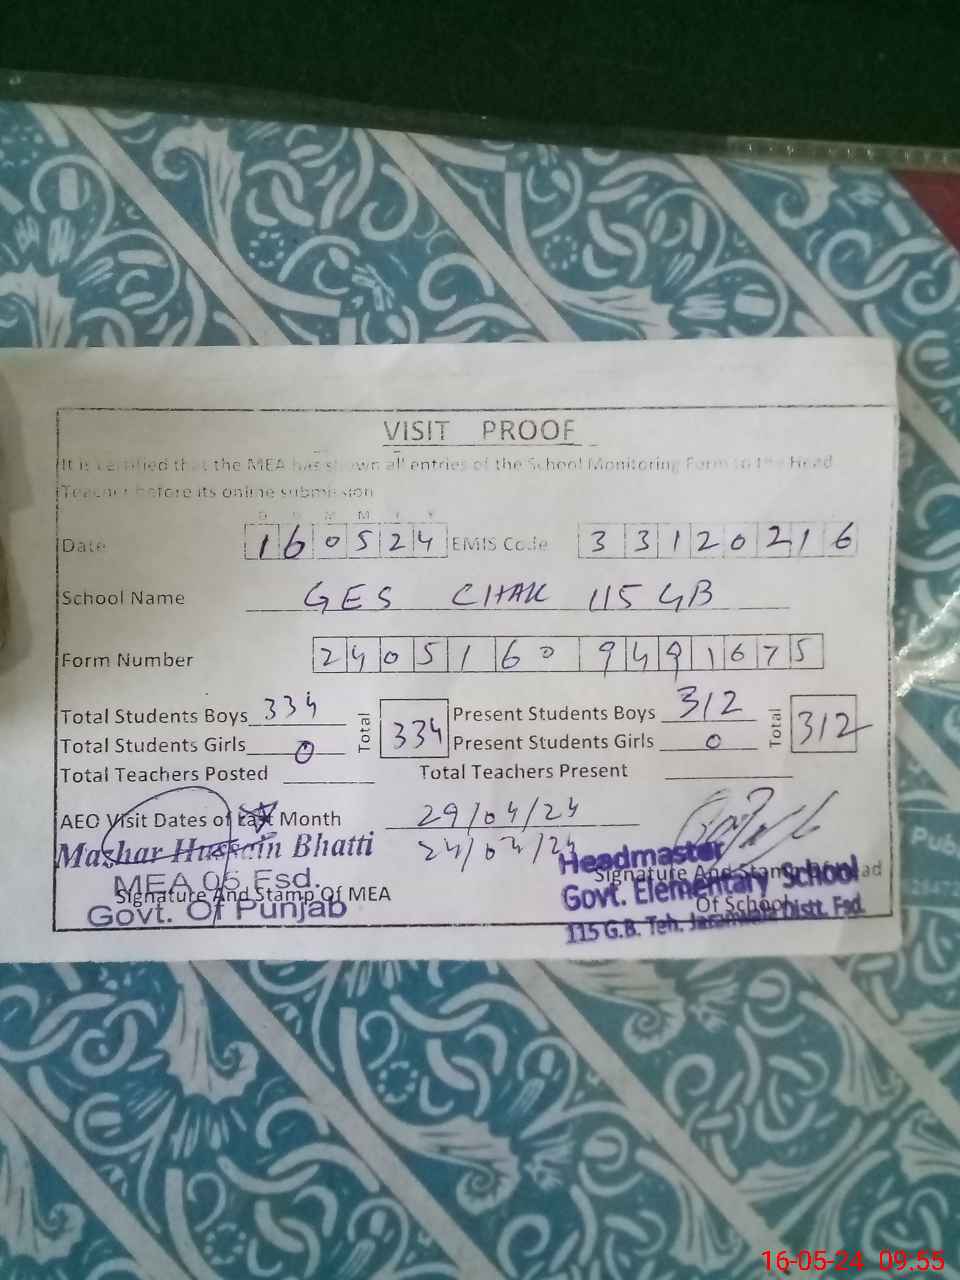 VISIT PROOF
It is certified that the MEA has shown all entries of the School Monitoring Form to the Head
Teacher before its online submission
D D M M Y Y
Date 1 6 0 5 2 4 EMIS Code 3 3 1 2 0 2 1 6
School Name GES CHAK 115 GB
Form Number 2 4 0 5 1 6 0 9 4 9 1 6 7 5
Total Students Boys 334 Total 334 Present Students Boys 312 Total 312
Total Students Girls 0 Present Students Girls 0
Total Teachers Posted Total Teachers Present
AEO Visit Dates of Last Month 29/04/24
24/04/24
Mazhar Hussain Bhatti
MEA 06 Fsd.
Signature And Stamp Of MEA
Govt. Of Punjab
Headmaster
Signature And Stamp Of Head
Govt. Elementary School
Of School
115 G.B. Teh. Jaranwala Distt. Fsd.
Pub
16-05-24 09.55